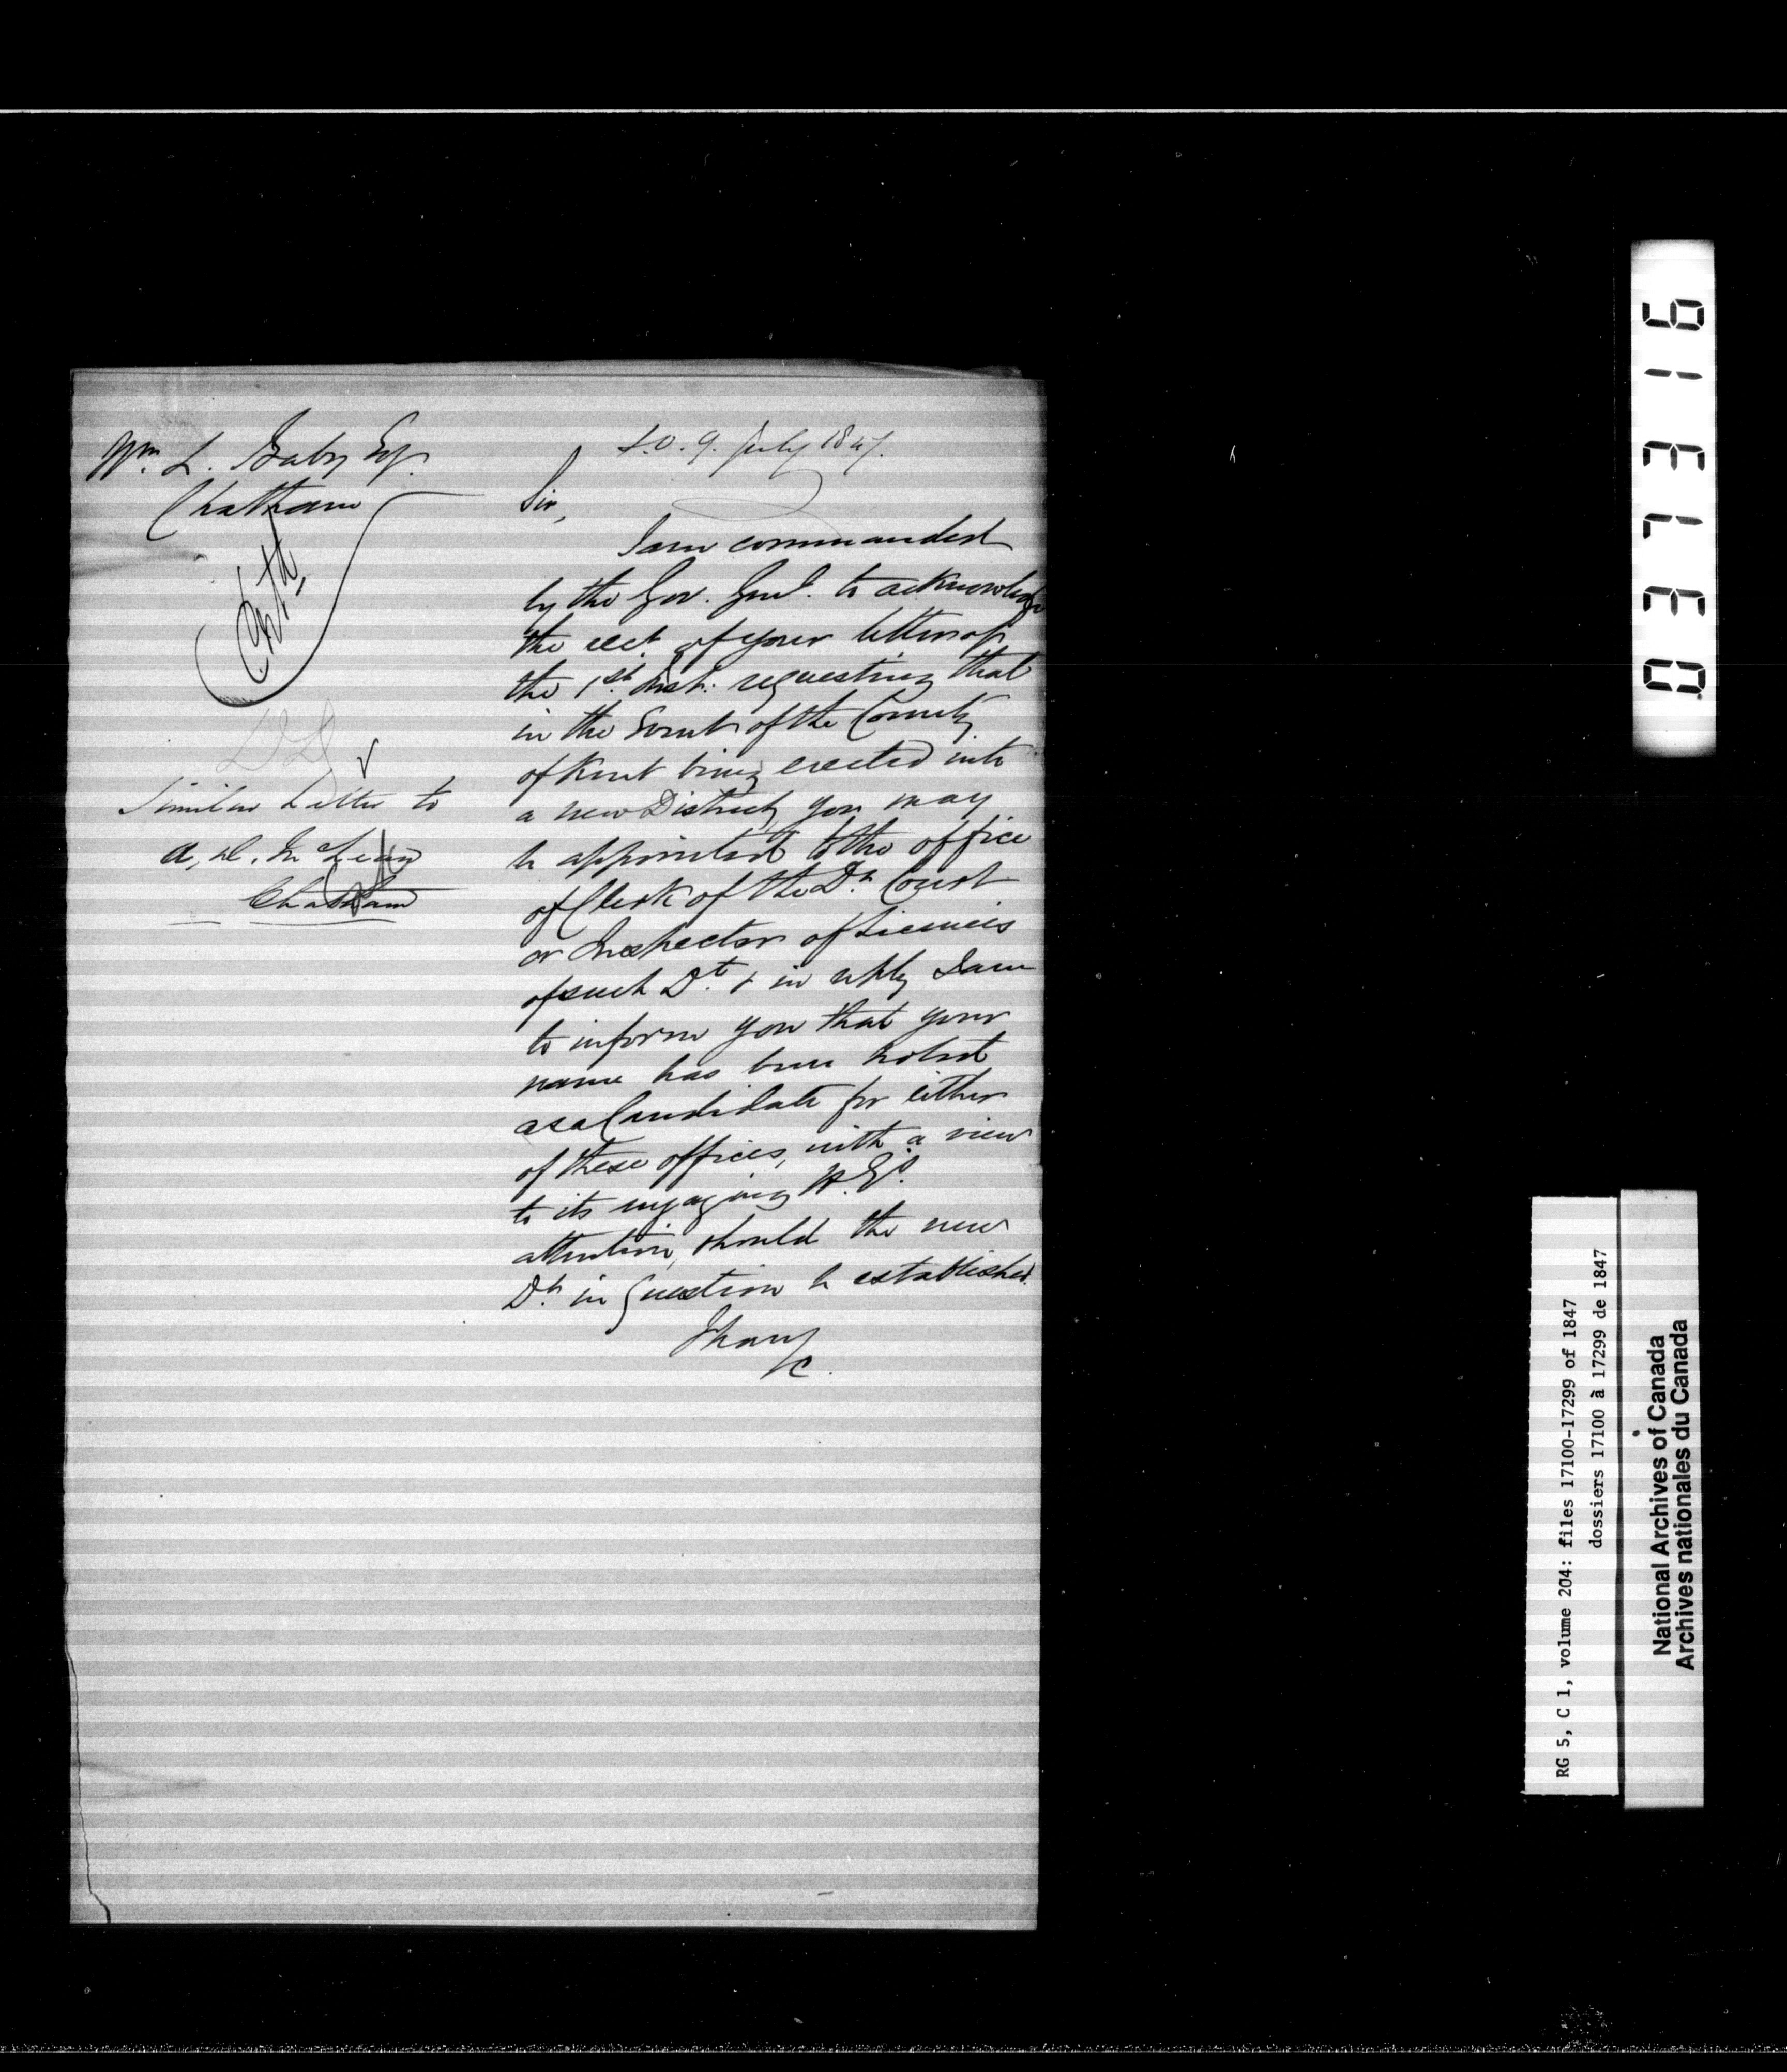 Wm. L. Baby Esq.
Chatham
S.O. 9. July 1847.
Sir,
I am commanded
by the Gov. Genl. to acknowledge
the rect. of your letter of
the 1st. Inst: requesting that
in the event of the County
of Kent being erected into
a new District, you may
be appointed to the office
of Clerk of the Dt. Court
or Inspector of Licences
of such Dt. & in reply I am
to inform you that your
name has been noted
as a Candidate for either
of these offices, with a view
to its engaging H. Es.
attention, should the new
Dt. in question be established.
I have
&c.
Similar Letter to
A, D. McLean
Chatham
037316
RG 5, C 1, volume 204: files 17100-17299 of 1847
dossiers 17100 à 17299 de 1847
National Archives of Canada
Archives nationales du Canada